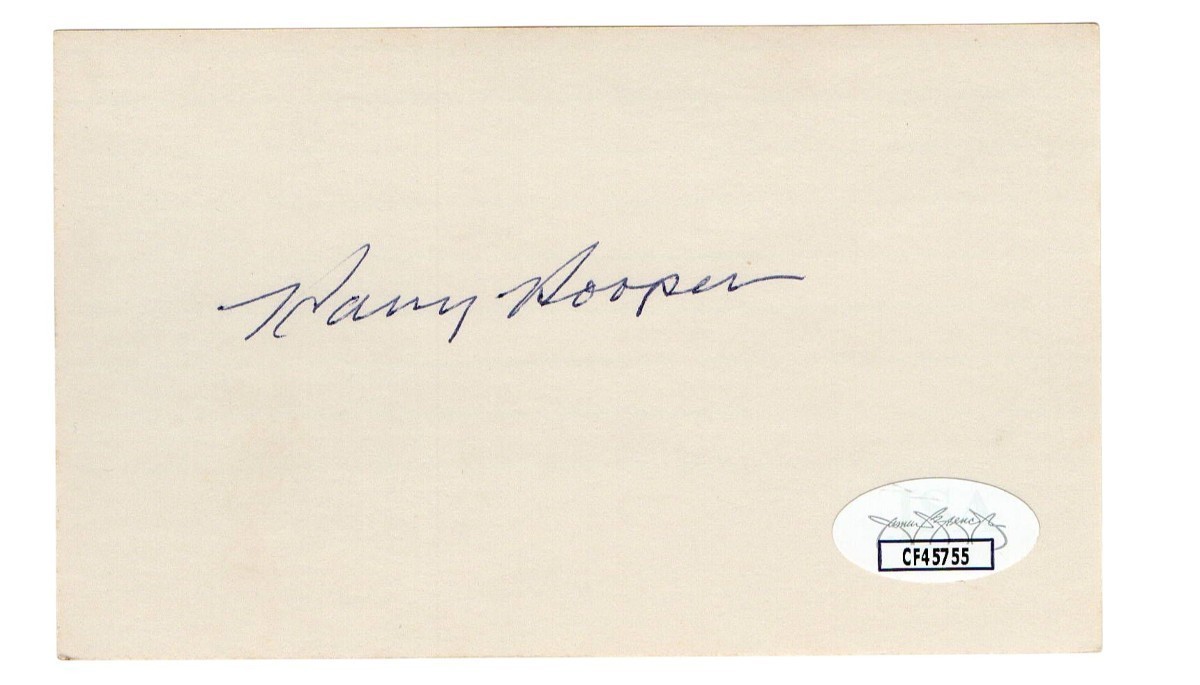 Harry Hooper
James Spence
CF45755